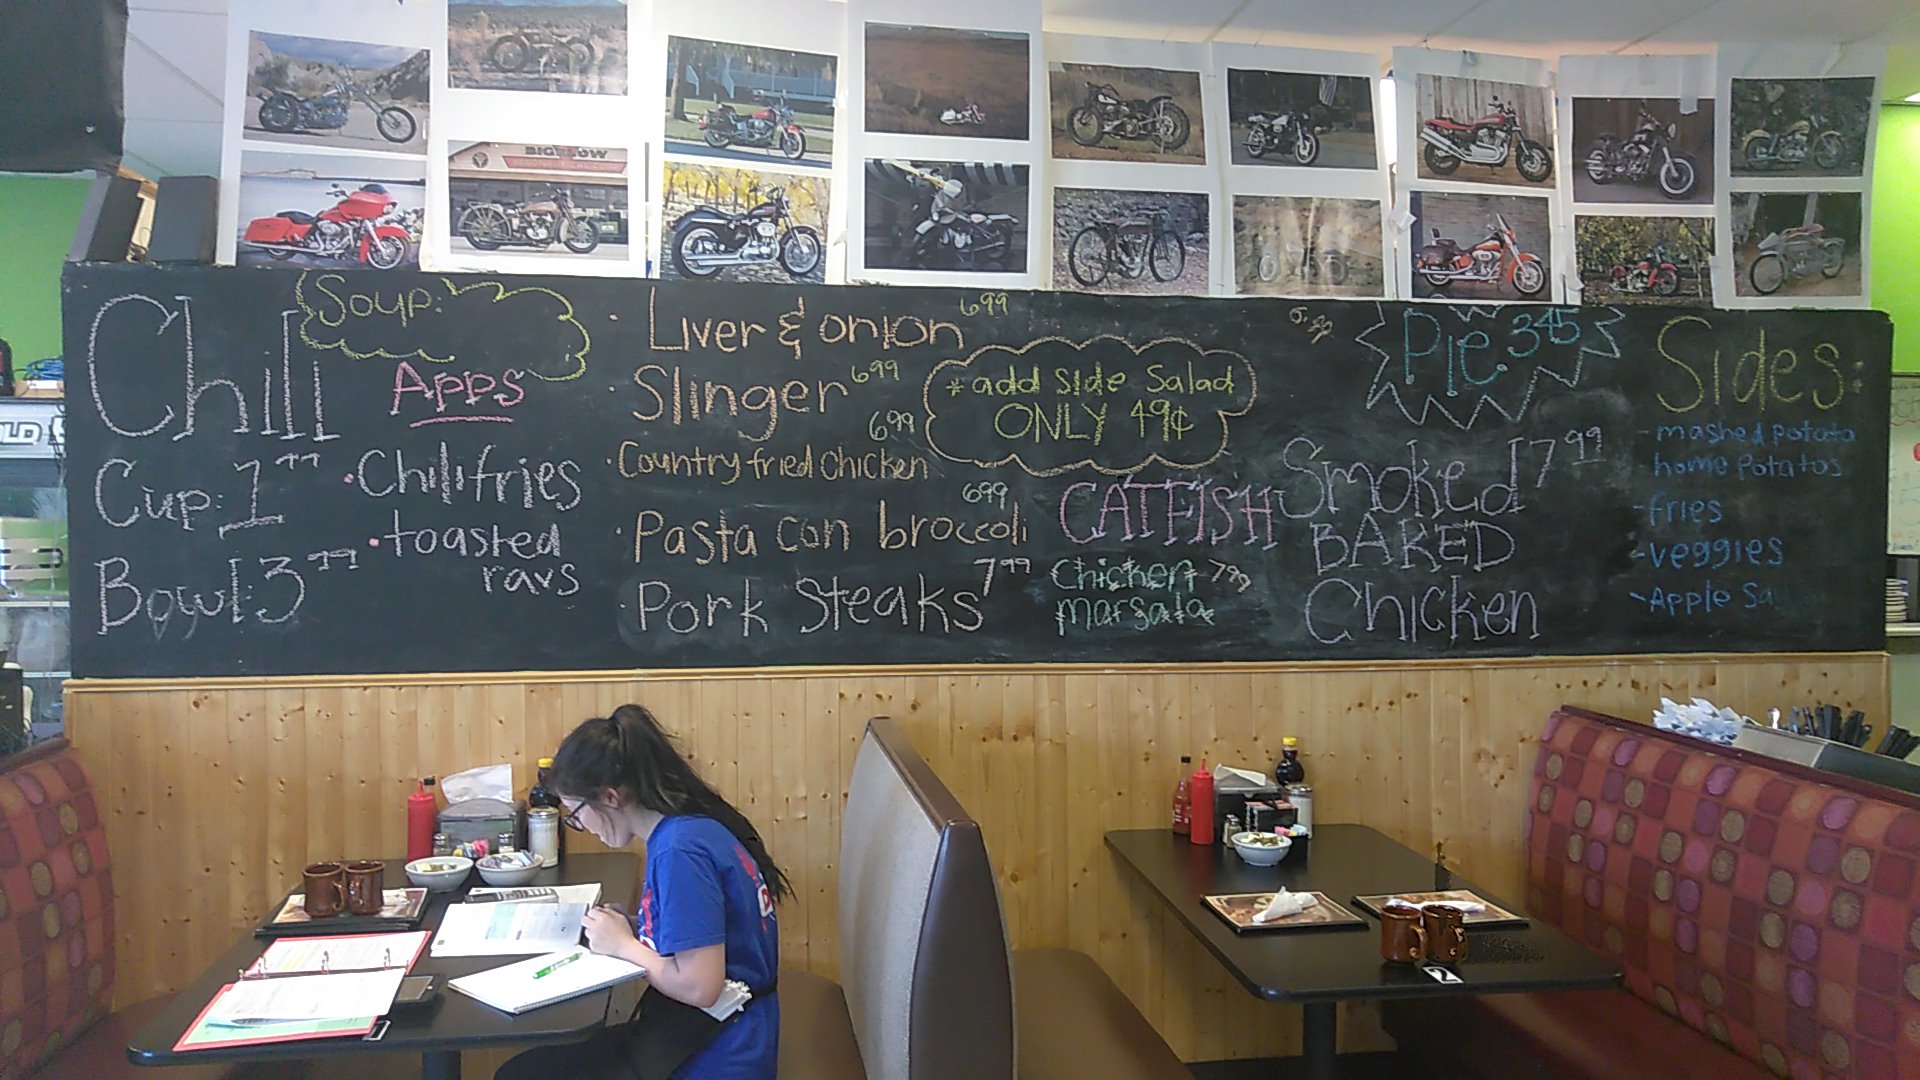 Chili
Cup: 1⁹⁹
Bowl: 3⁹⁹
Soup:
Apps
• Chili fries
• toasted
ravs
• Liver & onion 6⁹⁹
• Slinger 6⁹⁹
• Country fried chicken 6⁹⁹
• Pasta con broccoli 6⁹⁹
• Pork Steaks 7⁹⁹
* add side Salad
ONLY 49¢
CATFISH
Chicken 7⁹⁹
marsala
Pie 3.45
Smoked 7⁹⁹
BAKED
Chicken
Sides:
- mashed potato
- home potatos
- fries
- veggies
- Apple Sa
2